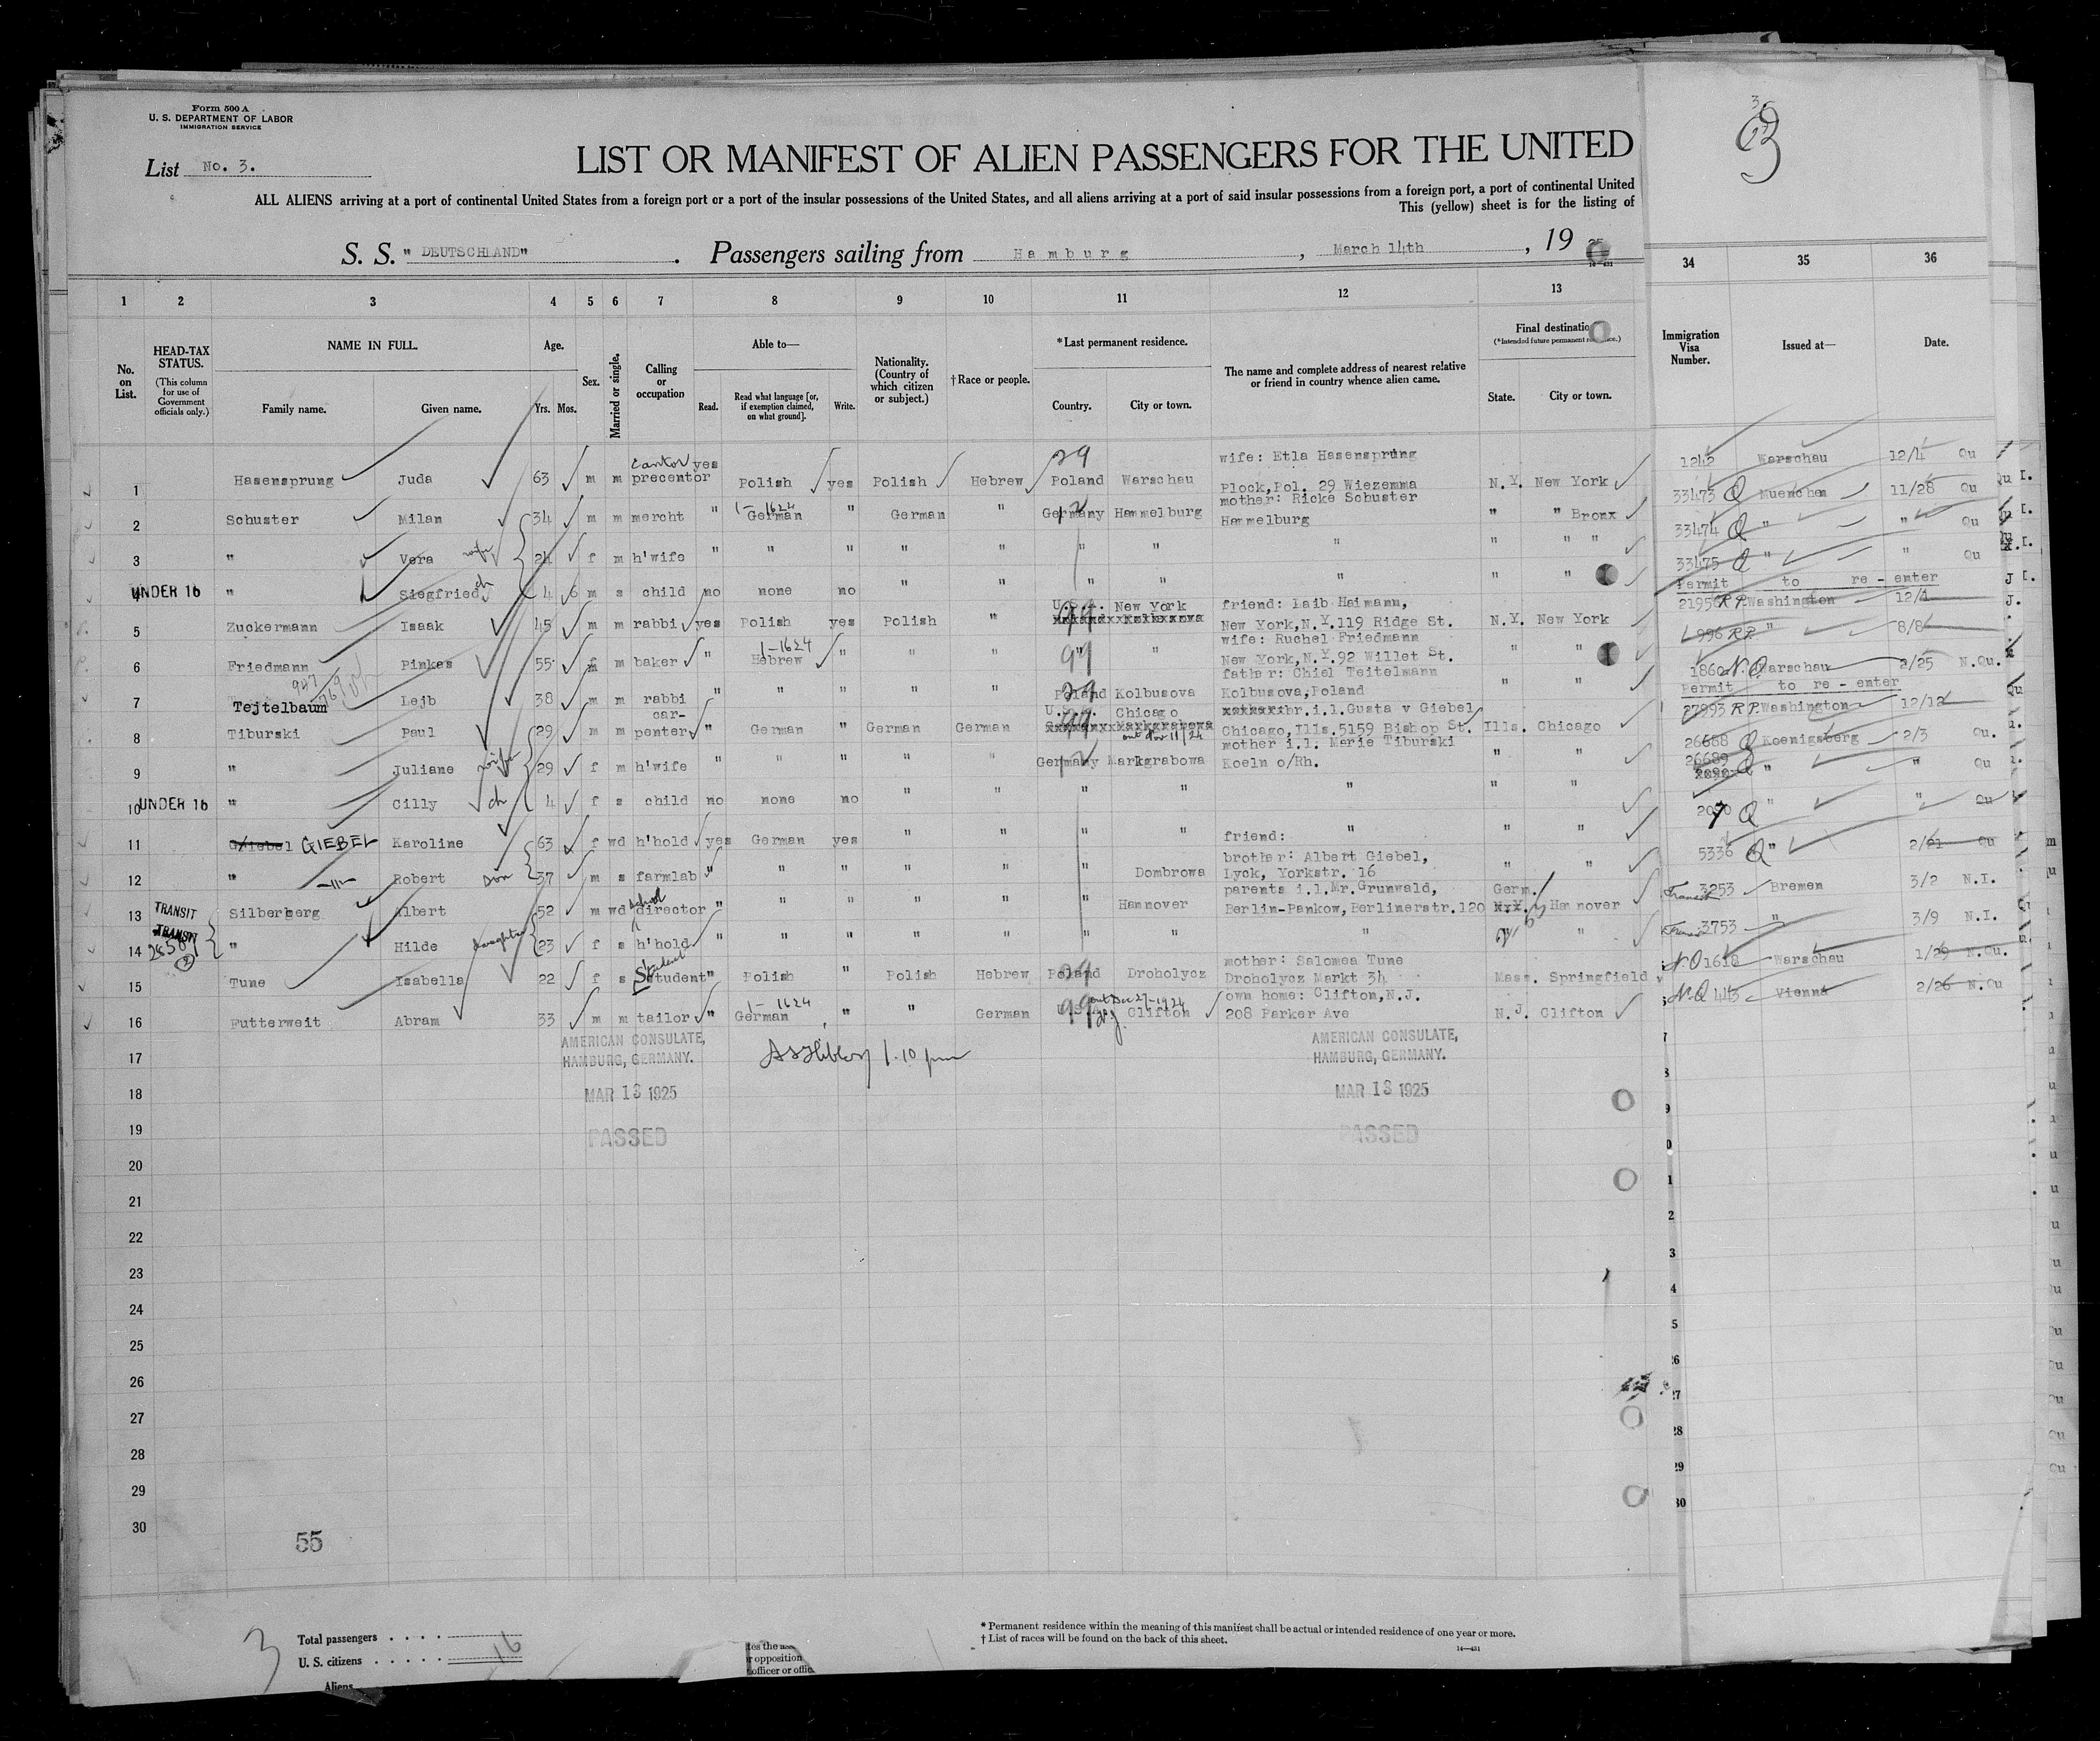 Form 500 A
U. S. DEPARTMENT OF LABOR
IMMIGRATION SERVICE
List No. 3.
LIST OR MANIFEST OF ALIEN PASSENGERS FOR THE UNITED
ALL ALIENS arriving at a port of continental United States from a foreign port or a port of the insular possessions of the United States, and all aliens arriving at a port of said insular possessions from a foreign port, a port of continental United
This (yellow) sheet is for the listing of
S. S. "DEUTSCHLAND" . Passengers sailing from Hamburg , March 14th , 19
1 2 3 4 5 6 7 8 9 10 11 12 13 34 35 36
No. on List.
HEAD-TAX STATUS.
(This column for use of Government officials only.)
NAME IN FULL.
Family name. Given name.
Age.
Yrs. Mos.
Sex.
Married or single.
Calling or occupation
Able to—
Read. Read what language [or, if exemption claimed, on what ground]. Write.
Nationality. (Country of which citizen or subject.)
† Race or people.
* Last permanent residence.
Country. City or town.
The name and complete address of nearest relative or friend in country whence alien came.
Final destination
State. City or town.
Immigration Visa Number.
Issued at—
Date.
1 Hasensprung Juda 63 m m cantor precentor yes Polish yes Polish Hebrew 29 Poland Warschau wife: Etla Hasensprung Plock,Pol. 29 Wiezemma N.Y. New York 1242 Warschau 12/4 Qu
2 Schuster Milan 34 m m mercht " 1-1624 German " German " Germany Hammelburg mother: Ricke Schuster Hammelburg " " Bronx 33473 Q Muenchen 11/28 Qu
3 " Vera wife 24 f m h'wife " " " " " " " " " " " 33474 Q " " Qu
UNDER 16 4 " Siegfried ch 4 6 m s child no none no " " " " " " " 33475 Q " " Qu
5 Zuckermann Isaak 45 m m rabbi yes Polish yes Polish " U.S.A. New York friend: Laib Haimann, New York,N.Y.119 Ridge St. N.Y. New York Permit to re-enter 21956 R.P. Washington 12/1
6 Friedmann Pinkas 55 m baker " 1-1624 Hebrew " " " 99 " wife: Ruchel Friedmann New York,N.Y.92 Willet St. " " 996 R.P. " 8/8
7 Tejtelbaum Lejb 38 m m rabbi " " " " " 29 Poland Kolbusova father: Chiel Teitelmann Kolbusova,Poland " " 1860 N.Q. Warschau 2/25 N.Qu.
8 Tiburski Paul 29 m m car-penter " German " German German U.S.A. Chicago br.i.l.Gusta v Giebel Chicago,Ills.5159 Bishop St. Ills. Chicago Permit to re-enter 27993 R.P. Washington 12/12
9 " Juliane wife 29 f m h'wife " " " " " Germany Markgrabowa mother i.l. Marie Tiburski Koeln o/Rh. " " 26688 Q Koenigsberg 2/3 Qu.
UNDER 16 10 " Cilly ch 4 f s child no none no " " " " " " " 26689 Q " " Qu
11 GIEBEL Karoline 63 f wd h'hold yes German yes " " " " friend: " " " Q " " Qu
12 " Robert son 37 m s farmlab " " " " " " Dombrowa brother: Albert Giebel, Lyck, Yorkstr. 16 " " 5336 Q " 2/21 Qu
TRANSIT 13 Silberberg Albert 52 m wd school director " " " " " " Hannover parents i.l.Mr.Grunwald, Berlin-Pankow,Berlinerstr.120 Germ. Hannover Transit 3253 Bremen 3/2 N.I.
TRANSIT 14 " Hilde daughter 23 f s h'hold " " " " " " " " " Transit 3753 " 3/9 N.I.
15 Tune Isabella 22 f s Student " Polish " Polish Hebrew Poland Droholycz mother: Salomea Tune Droholycz Markt 34 Mass. Springfield N.Q 1618 Warschau 1/29 N.Qu.
16 Futterweit Abram 33 m m tailor " 1-1624 German " " German 99 out Dec 27-1924 N.J. Clifton own home: Clifton,N.J. 208 Parker Ave N.J. Clifton N.Q 443 Vienna 2/26 N.Qu
17 AMERICAN CONSULATE, HAMBURG, GERMANY. 1.10 pm AMERICAN CONSULATE, HAMBURG, GERMANY.
18 MAR 13 1925 MAR 13 1925
19 PASSED PASSED
20
21
22
23
24
25
26
27
28
29
30
55
3 Total passengers 16
U. S. citizens
Aliens
* Permanent residence within the meaning of this manifest shall be actual or intended residence of one year or more.
† List of races will be found on the back of this sheet.
14—431